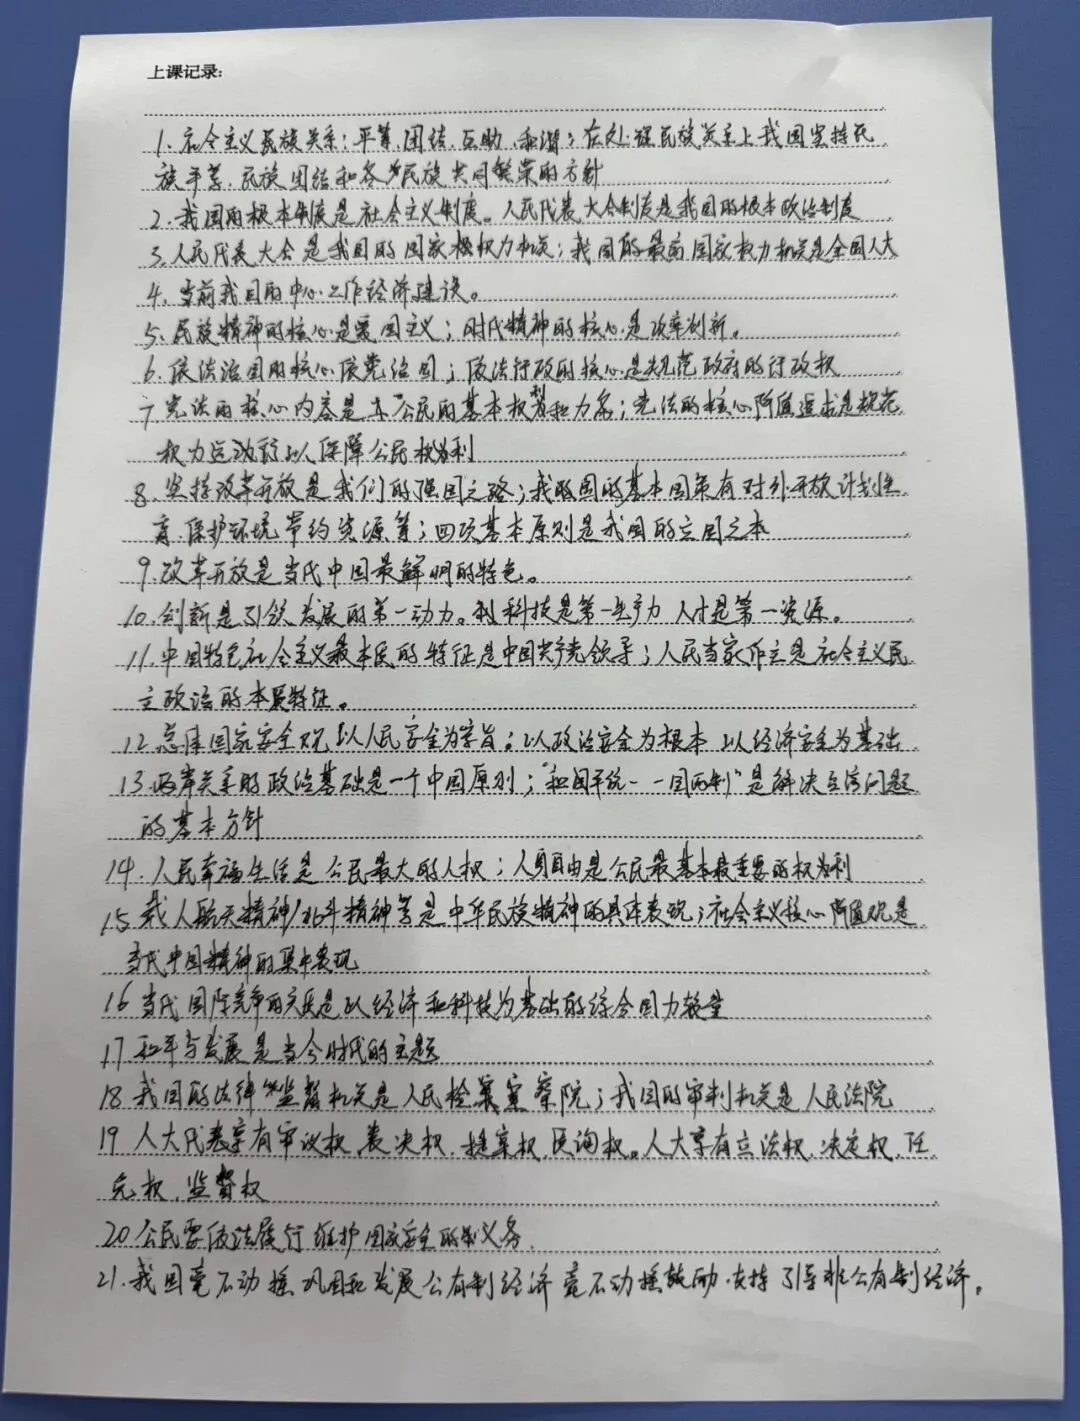 上课记录:
1. 社会主义民族关系:平等.团结.互助.和谐;在处理民族关系上我国坚持民
族平等.民族团结和各民族共同繁荣的方针
2. 我国的根本制度是社会主义制度。人民代表大会制度是我国的根本政治制度
3. 人民代表大会是我国的国家权力机关;我国的最高国家权力机关是全国人大
4. 当前我国的中心工作经济建设。
5. 民族精神的核心是爱国主义;时代精神的核心是改革创新。
6. 依法治国的核心依宪治国;依法行政的核心是规范政府的行政权
7. 宪法的核心内容是 公民的基本权利和义务;宪法的核心价值追求是规范
权力运行以保障公民权利
8. 坚持改革开放是我们的强国之路;我国的基本国策有对外开放计划生
育.保护环境节约资源等;四项基本原则是我国的立国之本
9. 改革开放是当代中国最鲜明的特色。
10. 创新是引领发展的第一动力。科技是第一生产力 人才是第一资源。
11. 中国特色社会主义最本质的特征是中国共产党领导;人民当家作主是社会主义民
主政治的本质特征。
12. 总体国家安全观 以人民安全为宗旨;以政治安全为根本 以经济安全为基础
13. 两岸关系的政治基础是一个中国原则;“和平统一 一国两制”是解决台湾问题
的基本方针
14. 人民幸福生活是公民最大的人权;人身自由是公民最基本最重要的权利
15 载人航天精神/北斗精神等是中华民族精神的具体表现;社会主义核心价值观是
当代中国精神的集中表现
16 当代国际竞争的实质是以经济和科技为基础的综合国力较量
17 和平与发展是当今时代的主题
18 我国的法律监督机关是人民检察院;我国的审判机关是人民法院
19 人大代表享有审议权,表决权.提案权.质询权。人大享有立法权.决定权.任
免权.监督权
20 公民要依法履行维护国家安全的义务.
21. 我国毫不动摇巩固和发展公有制经济 毫不动摇鼓励.支持 引导非公有制经济。